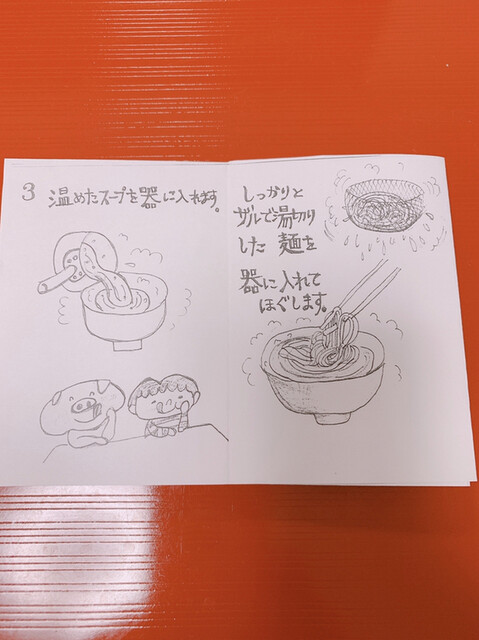 3 温めたスープを器に入れます。
しっかりと
ザルで湯切り
した 麺を
器に入れて
ほぐします。